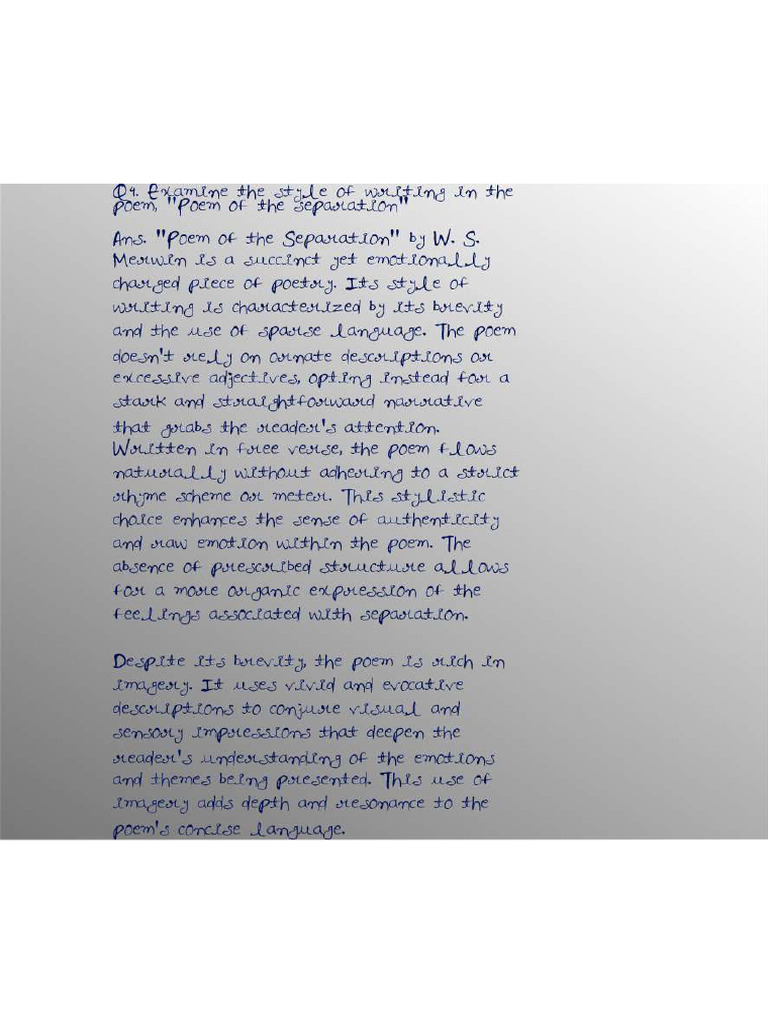 Q4. Examine the style of writing in the
poem, "Poem of the separation"
Ans. "Poem of the Separation" by W. S.
Merwin is a succinct yet emotionally
charged piece of poetry. Its style of
writing is characterized by its brevity
and the use of sparse language. The poem
doesn't rely on ornate descriptions or
excessive adjectives, opting instead for a
stark and straightforward narrative
that grabs the reader's attention.
Written in free verse, the poem flows
naturally without adhering to a strict
rhyme scheme or meter. This stylistic
choice enhances the sense of authenticity
and raw emotion within the poem. The
absence of prescribed structure allows
for a more organic expression of the
feelings associated with separation.
Despite its brevity, the poem is rich in
imagery. It uses vivid and evocative
descriptions to conjure visual and
sensory impressions that deepen the
reader's understanding of the emotions
and themes being presented. This use of
imagery adds depth and resonance to the
poem's concise language.